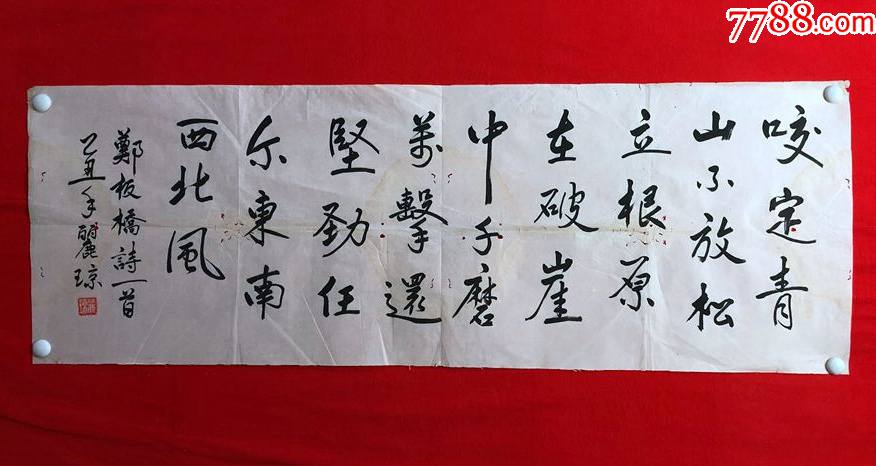 7788.com
咬定青
山不放松
立根原
在破崖
中千磨
萬擊還
堅勁任
尔東南
西北風
鄭板橋詩一首
乙丑年麗
琼